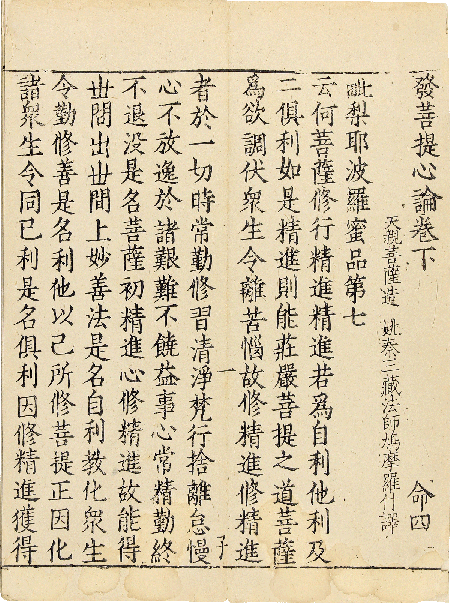 發菩提心論卷下 命四
天親菩薩造 姚秦三藏法師鳩摩羅什譯
毗梨耶波羅蜜品第七
云何菩薩修行精進精進若為自利他利及
二俱利如是精進則能莊嚴菩提之道菩薩
為欲調伏衆生令離苦惱故修精進修精進
者於一切時常勤修習清淨梵行捨離怠慢
心不放逸於諸艱難不饒益事心常精勤終
不退没是名菩薩初精進心修精進故能得
世間出世間上妙善法是名自利教化衆生
令勤修善是名利他以己所修菩提正因化
諸衆生令同己利是名俱利因修精進獲得
一